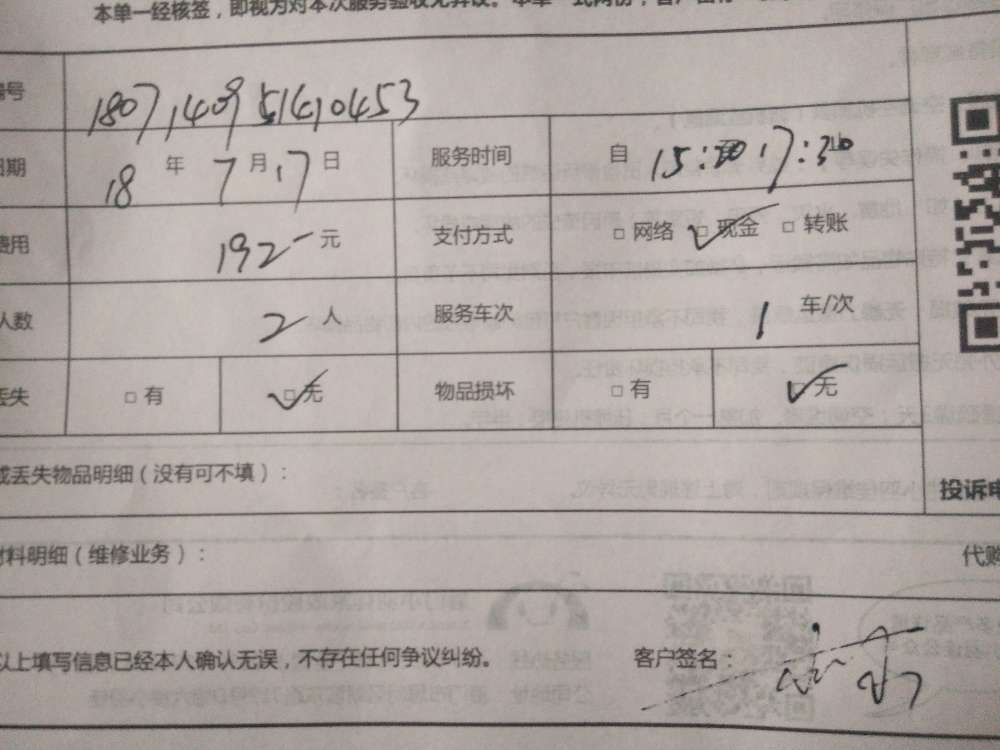 本单一经核签，即视为对本次服务验收无异议。本单一式两份，客户
编号 1807140951410453
日期 18 年 7 月 17 日 服务时间 自 15:30 17:30
费用 192 元 支付方式 □ 网络 □ 现金 □ 转账
人数 2 人 服务车次 1 车/次
丢失 □ 有 □ 无 物品损坏 □ 有 □ 无
或丢失物品明细（没有可不填）：
投诉电
材料明细（维修业务）： 代购
以上填写信息已经本人确认无误，不存在任何争议纠纷。 客户签名：